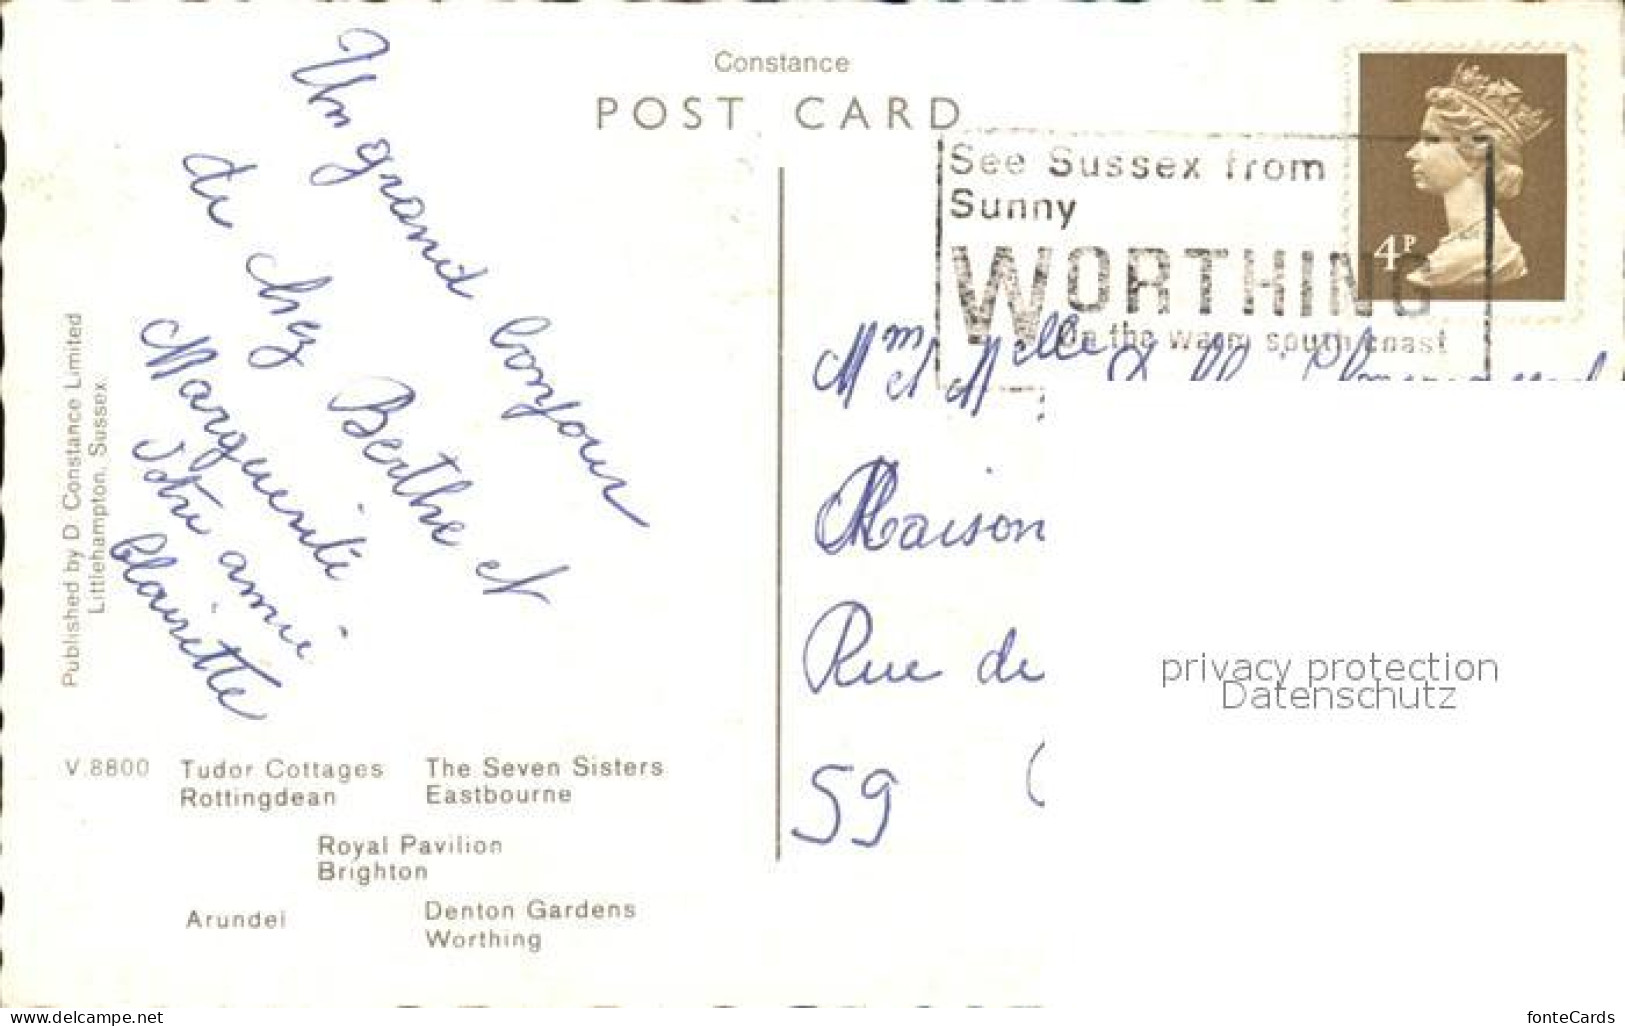 Constance
POST CARD
Un grand bonjour
de chez Berthe et
Marguerite
Votre amie
Clairette
Published by D Constance Limited
Littlehampton, Sussex.
V.8800
Tudor Cottages
Rottingdean
The Seven Sisters
Eastbourne
Royal Pavilion
Brighton
Arundel
Denton Gardens
Worthing
See Sussex from
Sunny
WORTHING
On the warm south coast
4P
Mm et Melle
Maison
Rue de
59
privacy protection
Datenschutz
www.delcampe.net
fonteCards